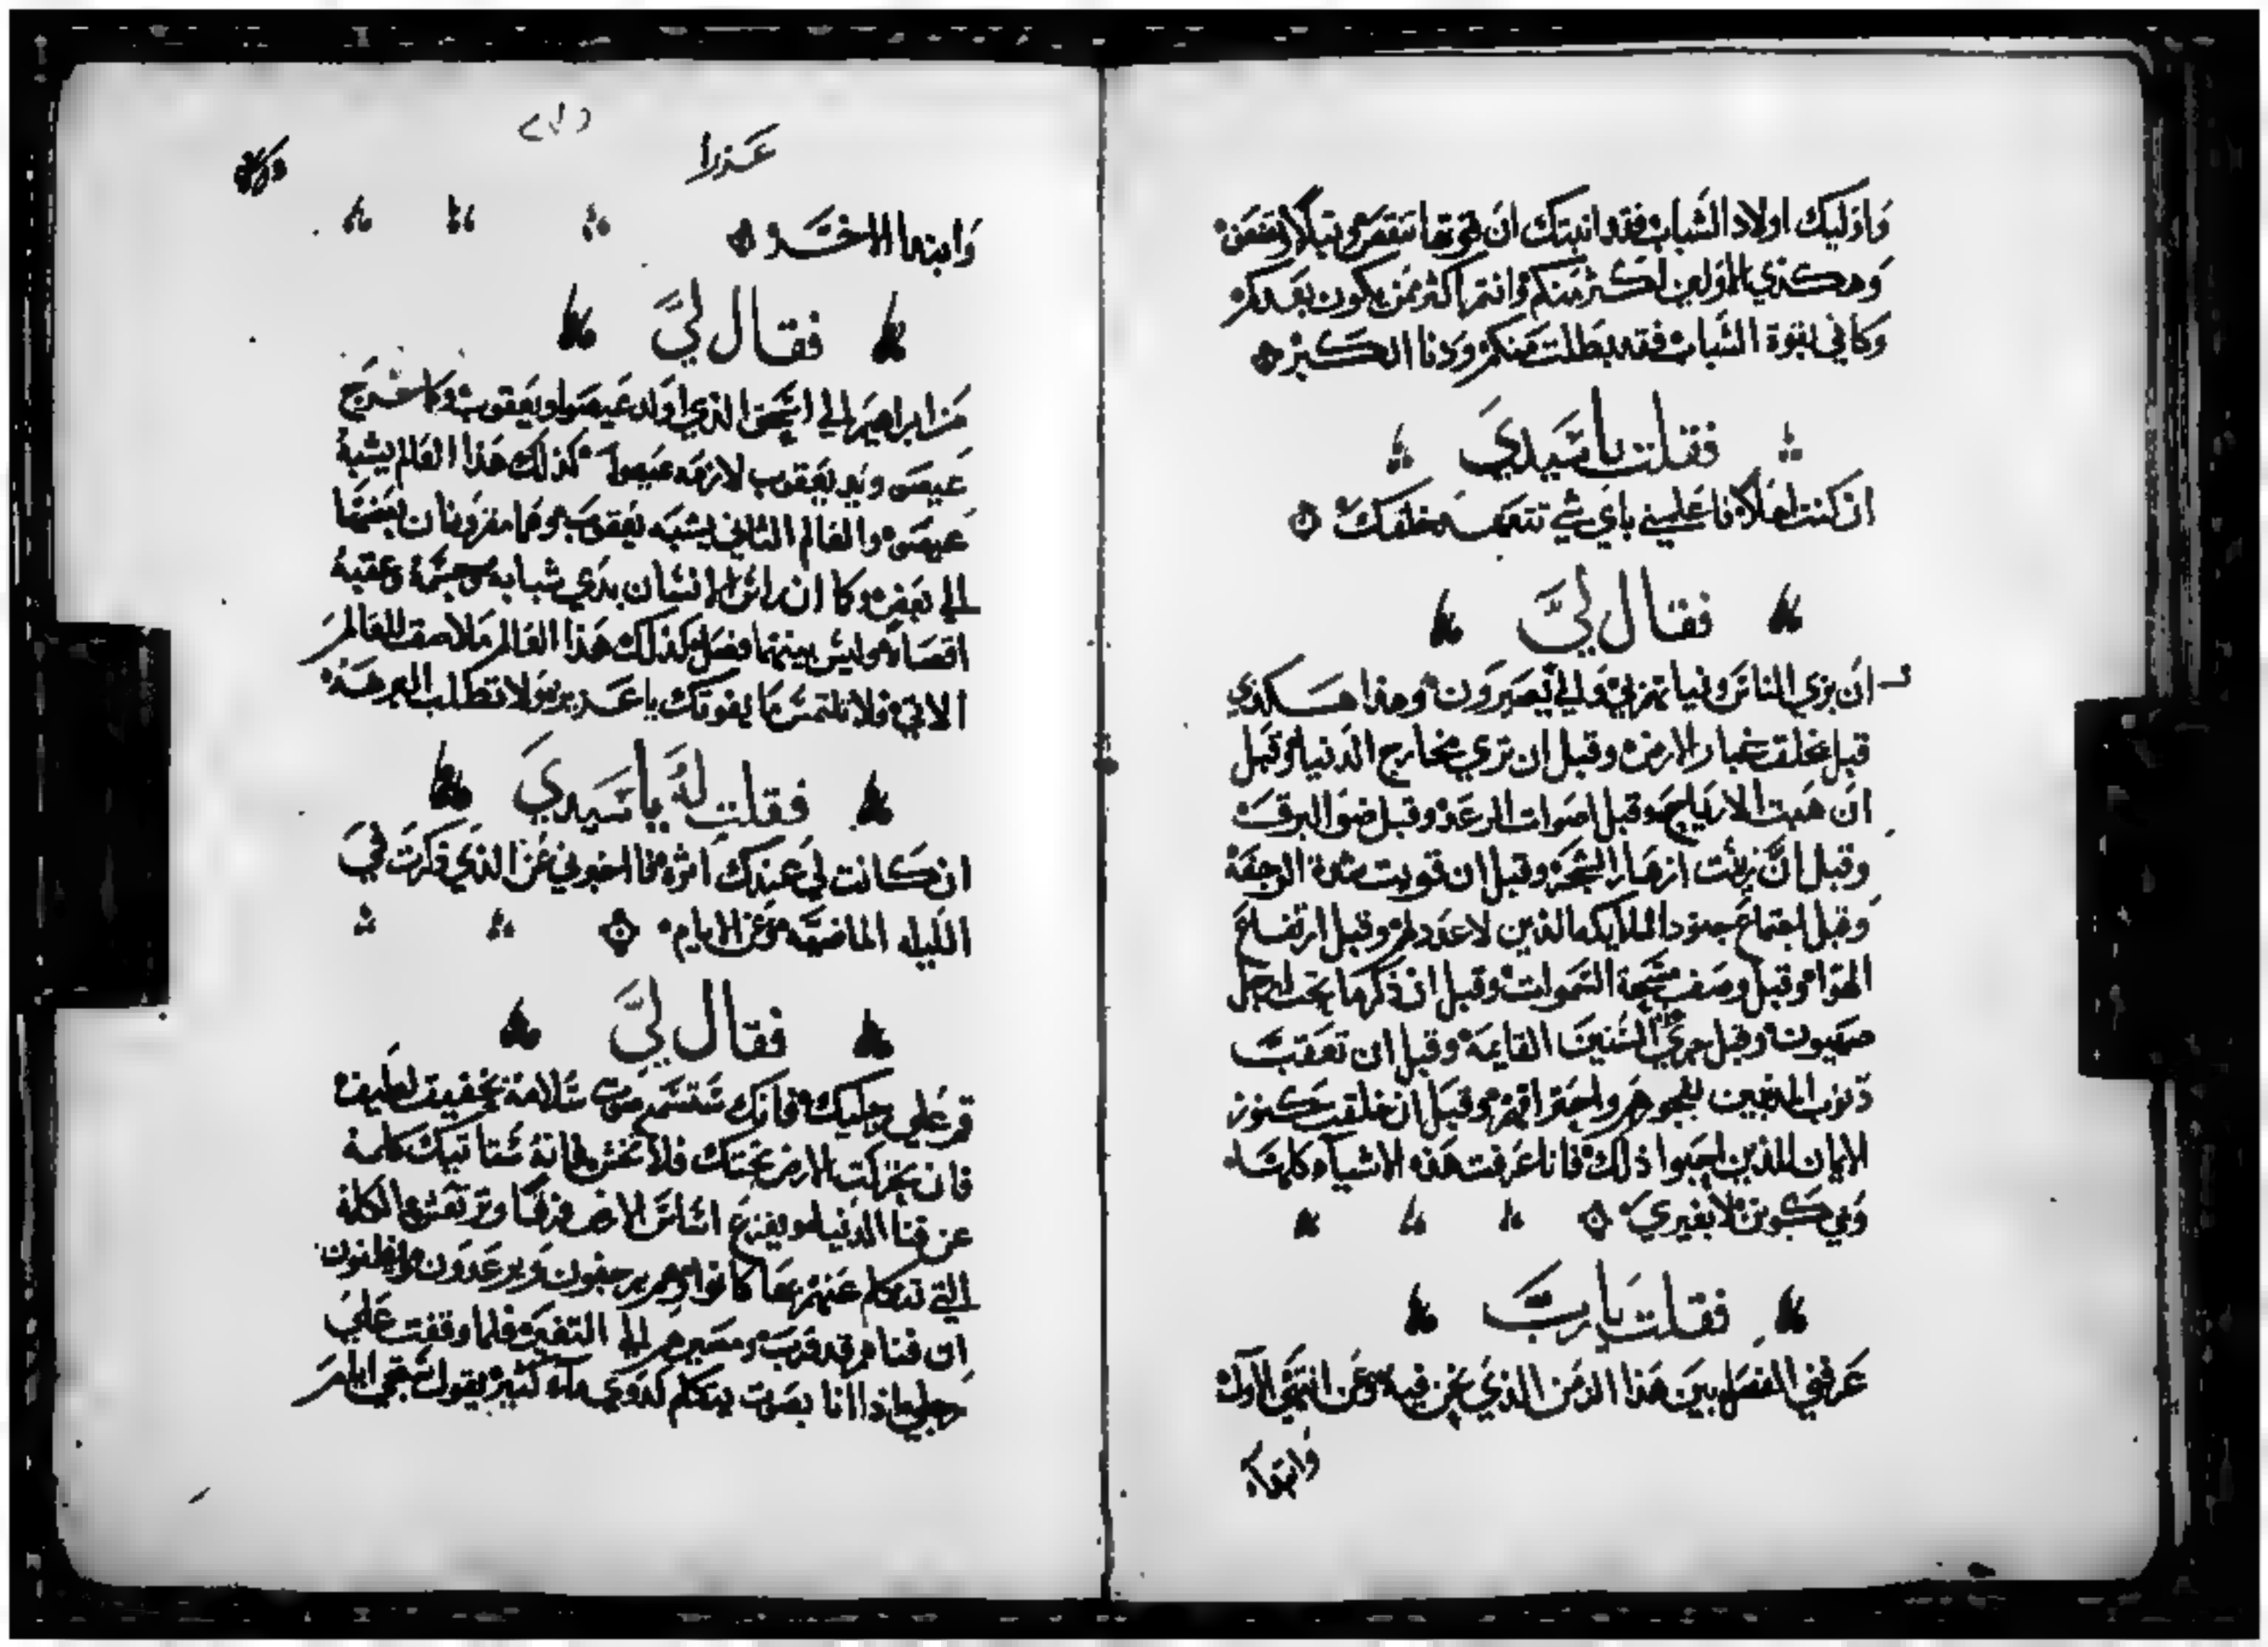 واوليك اولاد الشباب فقد انبتك ان قوتها تنقص
وهكذي المولدين اكثر منكم وانتم اكثر ممن يكون بعدكم
وكافي بقوة الشباب فقد بطلت منكم ودنا الكبر
فقلت يا سيدي
ان كنت اهلا فاعلمني باي شي تتعهد خلقك
فقال لي
ان بزي الناس دنيا والي يصيرون وهذا هكذي
قبل تخلق غبار الارض وقبل ان تري مخارج الدنيا وقبل
ان هبت الارياح وقبل اصوات الرعد وقبل ضو البرق
وقبل ان زينت ازهار الشجر وقبل ان قويت شدة الرجفة
وقبل اجتماع جنود الملايكه الذين لا عدد لهم وقبل ارتفاع
الهوا وقبل وصف السموات وقبل ان ذكرها تحت ارجل
صهيون وقبل السنين القايمة وقبل ان تعقب
ذنوب المذنبين وقبل ان خلقت كنوز
الايمان للذين احبوا ذلك فانا عرفت هذه الاشيآء كلها
وبي كونت لا بغيري
فقلت يا رب
عرفني الفصل بين هذا الزمن الذي نحن فيه وعن انتهي الاول
وابتدآ
عزرا
وابتدا الاخر
فقال لي
من ابراهيم الي اسحق الذي اولد عيصوا ويعقوب وكما خرج
عيصو ويد يعقوب لازمه عيصوا كذلك هذا العالم يشبه
عيصو والعالم الثاني يشبه يعقوب وهما مقرونان بعضها
الي بعض وكما ان راس الانسان بدي شبابه وجسمه وعقبه
اقصاه وليس بينهما فصل كذلك هذا العالم ملاصق العالم
الاتي فلا تلتمس ما يفوتك يا عزير ولا تطلب البرهنة
فقلت له يا سيدي
ان كانت لي عندك اثره فاخبرني عن الذي ذكرت في
الليله الماضيه وعن الايام
فقال لي
قم علي رجليك فانك ستسمع صوت سلامة خفيف لطيف
فان تحركت الارض تحتك فلا تخش لانه ستاتيك كلمة
عن فنا الدنيا ويفزع اساس الارض فزعا وترتعش الكلمة
التي تتكلم عنهم كانوا وهم يرجفون ويرعدون ويظنون
ان فناهم قد قرب ومصيرهم الي التغير فلما وقفت علي
رجلي اذا انا بصوت يتكلم كدوي مآء كثير يقول ايام